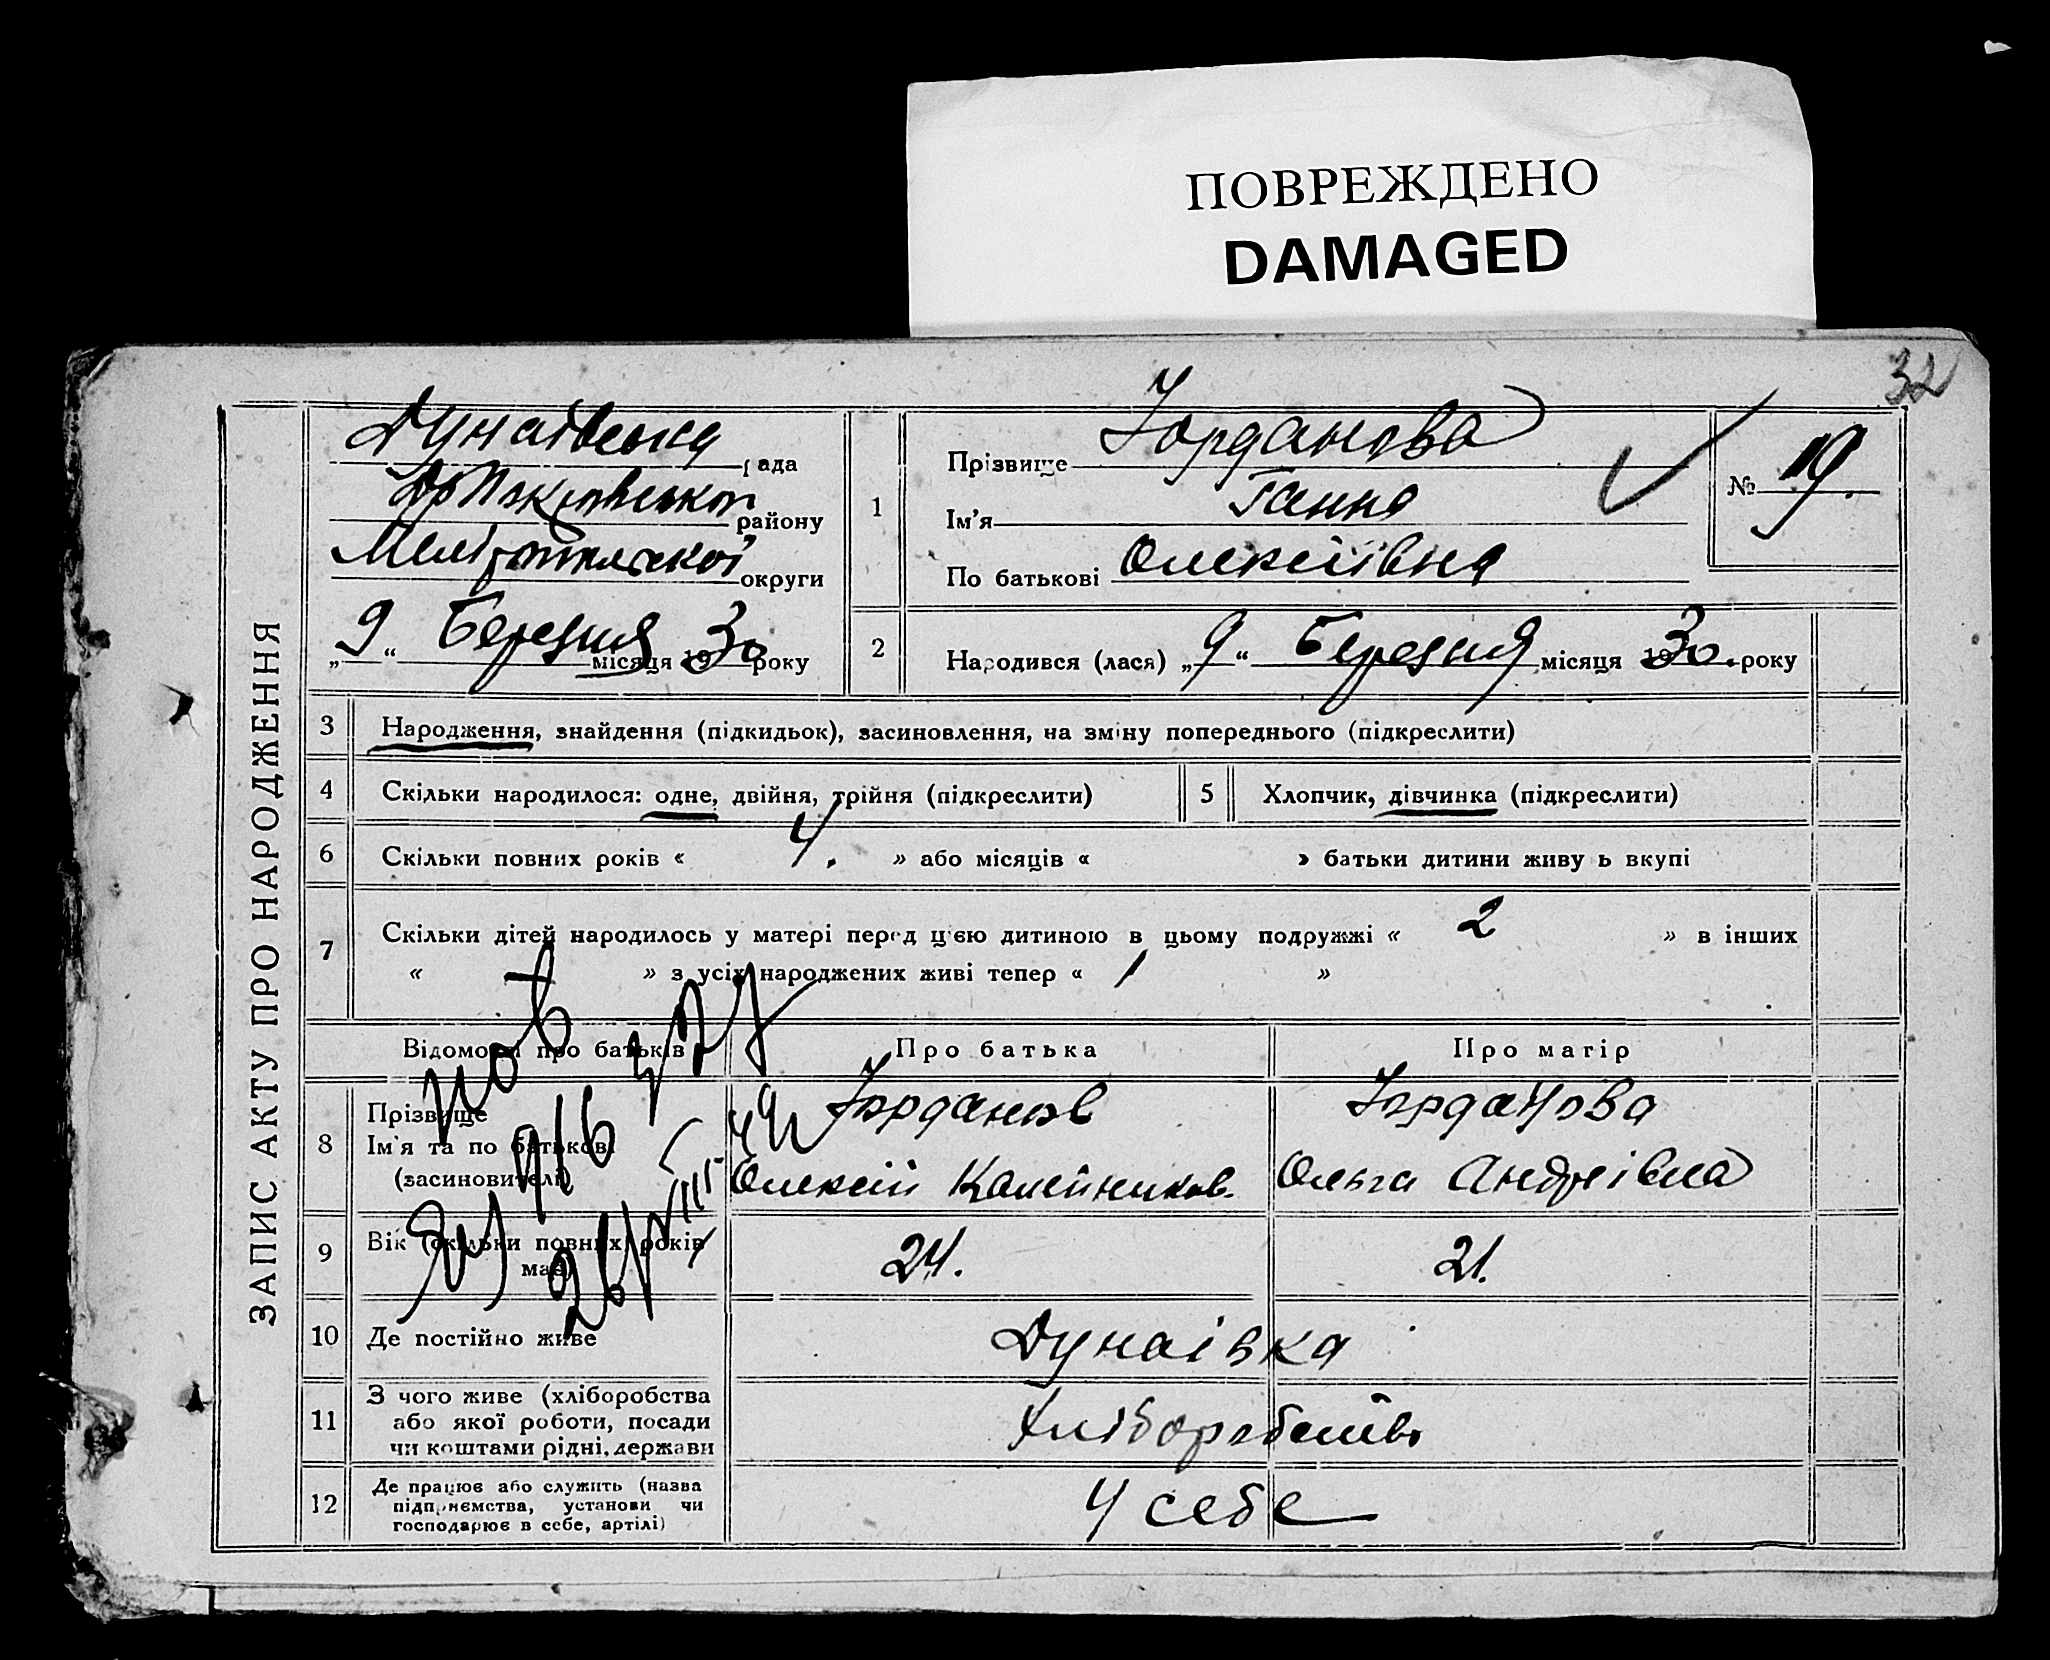 ПОВРЕЖДЕНО
DAMAGED
32
ЗАПИС АКТУ ПРО НАРОДЖЕННЯ
Дунаївська рада
району
Мелітопільської округи
„9“ Березня місяця 1930 року
1
Прізвище Йорданова
Ім'я Ганна
По батькові Олексіївна
№ 19.
2
Народився (лася) „9“ Березня місяця 1930. року
3 Народження, знайдення (підкидьок), засиновлення, на зміну попереднього (підкреслити)
4 Скільки народилося: одне, двійня, трійня (підкреслити) 5 Хлопчик, дівчинка (підкреслити)
6 Скільки повних років « 4. » або місяців « » батьки дитини живу ь вкупі
7 Скільки дітей народилось у матері перед цією дитиною в цьому подружжі « 2 » в інших
« » з усіх народжених живі тепер « 1 »
Відомости про батьків Про батька Про матір
8 Прізвище Йорданов Йорданова
Ім'я та по батькові Олексій Ольга Андріївна
(засиновителі)
9 Вік (скільки повних років має) 24. 21.
10 Де постійно живе Дунаівка
11 З чого живе (хліборобства
або якої роботи, посади
чи коштами рідні, держави
Хліборобство
12 Де працює або служить (назва
підприємства, установи чи
господарює в себе, артілі)
У себе